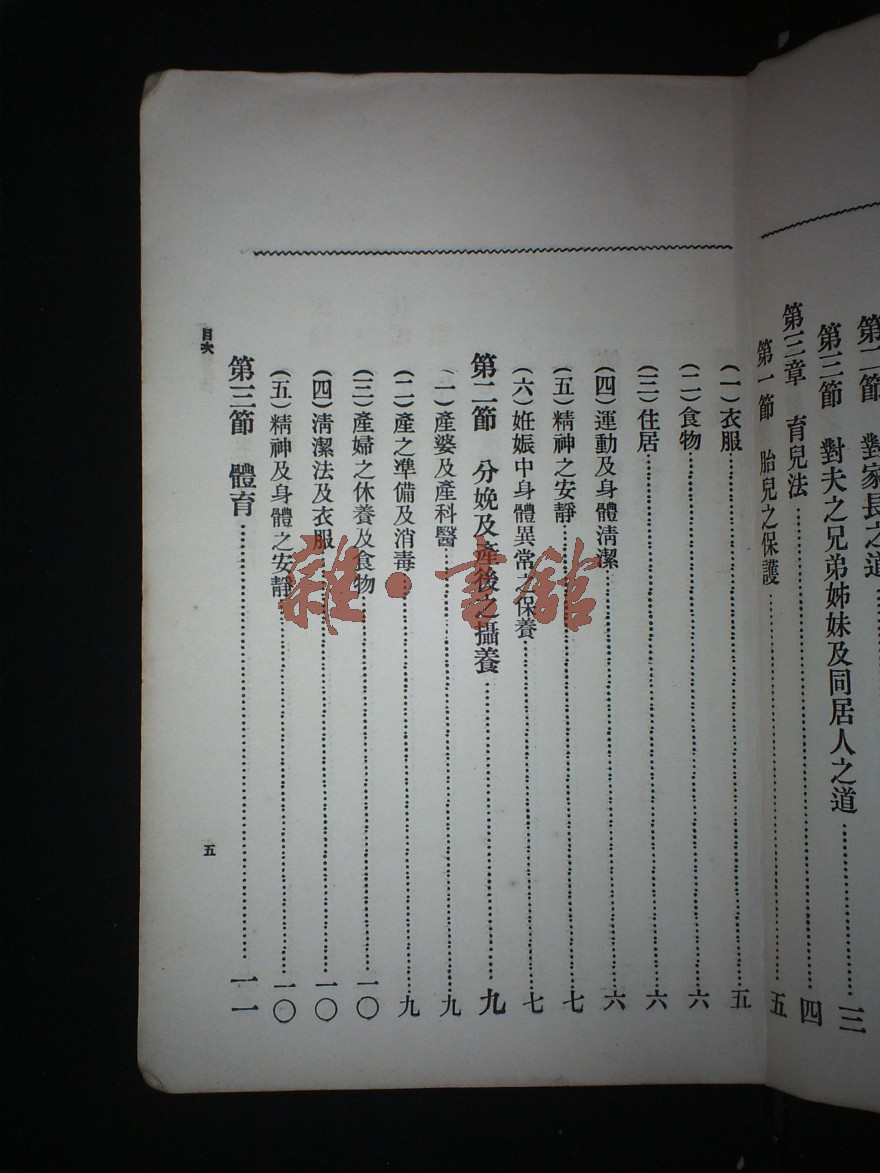 第二節　對家長之道
第三節　對夫之兄弟姊妹及同居人之道……三
第三章　育兒法……四
第一節　胎兒之保護……五
(一)衣服……五
(二)食物……六
(三)住居……六
(四)運動及身體淸潔……六
(五)精神之安靜……七
(六)妊娠中身體異常之保養……七
第二節　分娩及產後之攝養……九
(一)產婆及產科醫……九
(二)產之準備及消毒……九
(三)產婦之休養及食物……一〇
(四)淸潔法及衣服……一〇
(五)精神及身體之安靜……一〇
第三節　體育……一一
目次
五
雜·書館